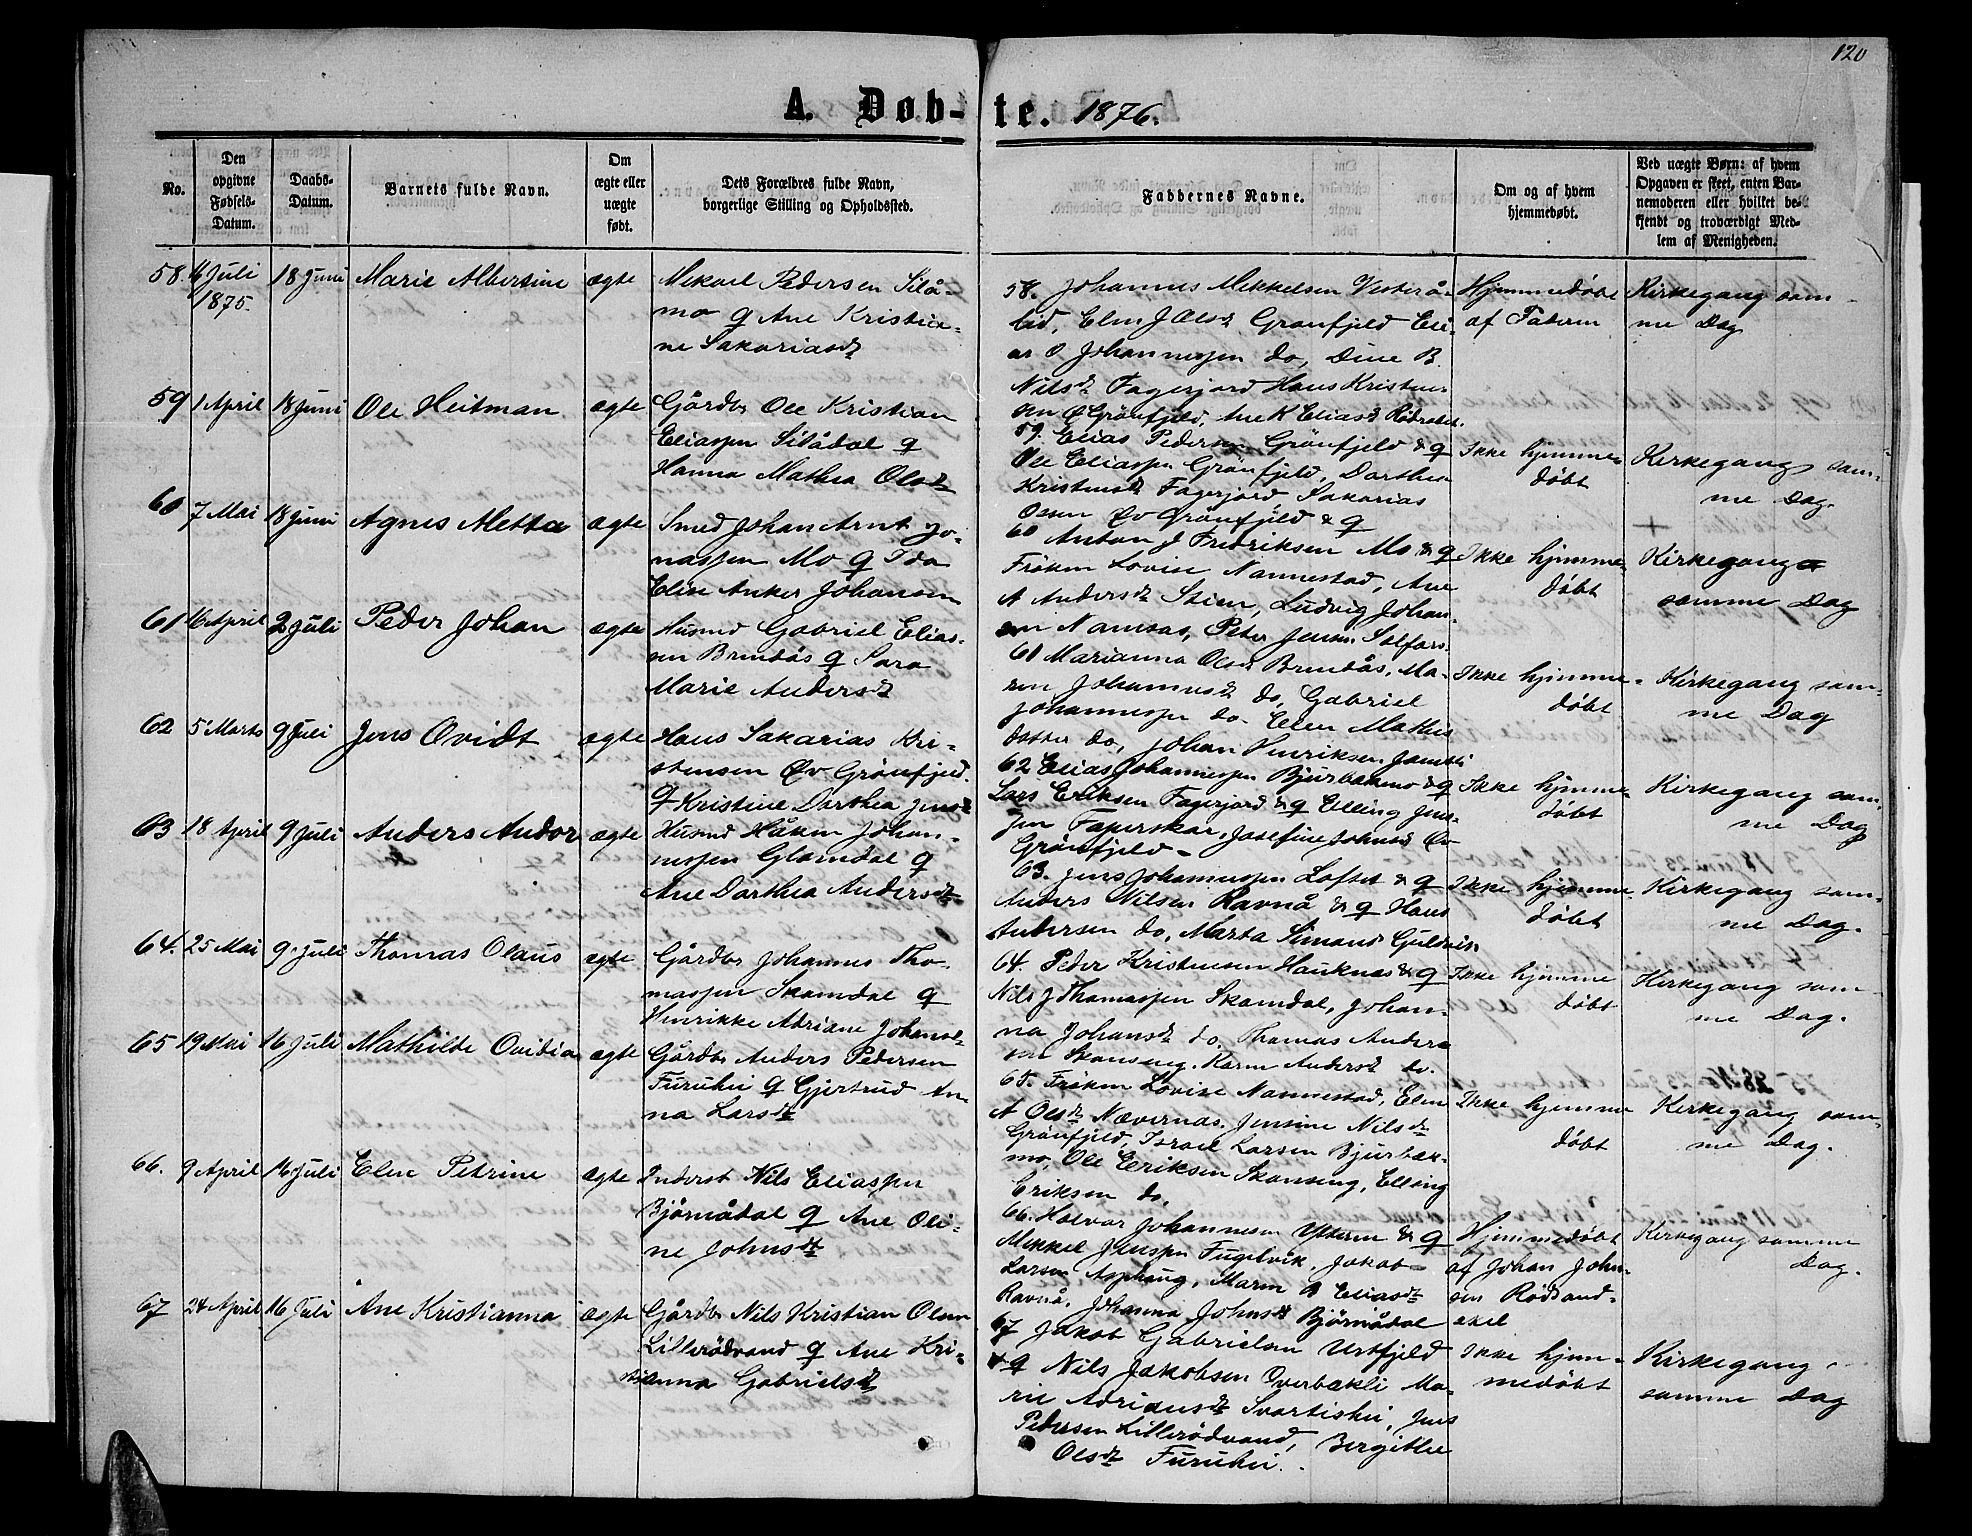 120
A. Døb- te. 1876.
No.
Den opgivne Fødsels-Datum.
Daabs-Datum.
Barnets fulde Navn.
Om ægte eller uægte født.
Dets Forældres fulde Navn, borgerlige Stilling og Opholdssted.
Faddernes Navne.
Om og af hvem hjemmedøbt.
Ved uægte Børn: af hvem Opgaven er skeet, enten Barnemoderen eller hvilket bekjendt og troværdigt Medlem af Menigheden.
58. Juli 1875. 18 Juni Marie Albertine ægte
Mikael Pedersen Silå-
mo & Ane Kristia-
ne Sakariasdt
58. Johannes Mikkelsen Vesterå-
lid, Elen J Olsdt Grønfjeld Eli-
as O Johannessen do, Dine B.
Nilsdt Fagerjord Hans Kristen-
sen Ø Grønfjeld, Ane K Eliasdt
Hjemmedøbt
af Faderen
Kirkegang sam-
me Dag
59 1 April 18 Juni Ole Heitman ægte
Gårdbr Ole Kristian
Eliassen Silådal &
Hanna Mathea Olsdt
59. Elias Pedersen Grönfjeld & &
Ole Eliassen Grönfjeld, Darthea
Kristensdt Fagerjord Sakarias
Olsen Øv Grönfjeld & &
Ikke hjemme-
döbt
Kirkegang sam-
me Dag.
60 7 Mai 18 Juni Agnes Metta ægte
Smed Johan Arnt Jo-
nassen Mo & Ida
Elise Anker Johansen
60 Anton J Fredriksen Mo & &
Frøken Lovise Nannestad, Ane
A Andersdt Stien, Ludvig Johan-
sen Namsås, Peter Jensen Selfors
Ikke hjemme-
døbt
Kirkegang
samme Dag
61 16 April 2 Juli Peder Johan ægte
Husmd Gabriel Elias-
sen Brendås & Sara
Marie Andersdt
61 Marianna Olsdt Brendås, Ma-
ren Johannesdt do, Gabriel
Johannessen do. Elen Mathis
datter do, Johan Henriksen
Ikke hjemme-
døbt
Kirkegang sam-
me Dag
62 5 Marts 9 Juli Jens Ovidt ægte
Hans Sakarias Kri-
stensen Øv Grönfjeld.
& Kristine Darthea Jensdt
62 Elias Johannessen Bjurbækmo & &
Lars Eriksen Fagerjord & & Elling Jen-
sen Faperskar, Josefine Johnsdt Øv
Grönfjeld
Ikke hjemme-
døbt
Kirkegang sam-
me Dag
63 18 April 9 Juli Anders Andor ægte
Husmd Håken Johan-
nessen Glamdal &
Ane Darthea Andersdt
63. Jens Johannessen Loftet & &
Anders Nilsen Ravnå & & Hans
Andersen do, Marta Simonsdt Guldvik
Ikke hjemme-
døbt
Kirkegang sam-
me Dag.
64. 25 Mai 9 Juli Thomas Olaus ægte
Gårdbr Johannes Tho-
massen Skamdal &
Henrikke Adriane Johansdt
64. Peder Kristensen Hauknes & &
Nils J Thomassen Skamdal, Johan-
na Johansdt do, Thomas Ander-
sen Skonseng, Karen Andersdt do.
Ikke hjemme
døbt
Kirkegang sam-
me Dag.
65 19 Mai 16 Juli Mathilde Ovidia ægte
Gårdbr Anders Pedersen
Furuhei & Gjertrud An-
na Larsdt
65. Frøken Lovise Nannestad, Elen
A Olsdt Nævernes, Jensine Nilsdt
Grönfjeld, Israel Larsen Bjurbæk-
mo, Ole Eriksen Skonseng, Elling
Eriksen do.
Ikke hjemme
døbt
Kirkegang sam-
me Dag.
66. 9 April 16 Juli Elen Petrine ægte
Inderst Nils Eliassen
Bjørnådal & Ane Oli-
ne Johnsdt
66. Halvor Johannesen Ytteren & &
Mikkel Jenssen Fugelvik, Jakob
Larsen Asphaug, Maren B Eliasdt
Ravnå, Johanna Johnsdt Bjørnådal
Hjemmedøbt
af Johan John-
sen Rødsand-
axel
Kirkegang samme
Dag.
67 24 April 16 Juli Ane Kristianna ægte
Gårdbr Nils Kristian Olsen
Lillerödvand & Ane Kri-
stianna Gabrielsdt
67 Jakob Gabrielsen Urtfjeld
& & Nils Jakobsen Overbækli Ma-
rie Adriansdt Svartishei, Jens
Pedersen Lillerödvand, Bergithe
Olsdt Furuhei.
Ikke hjem-
medøbt
Kirkegang
samme Dag